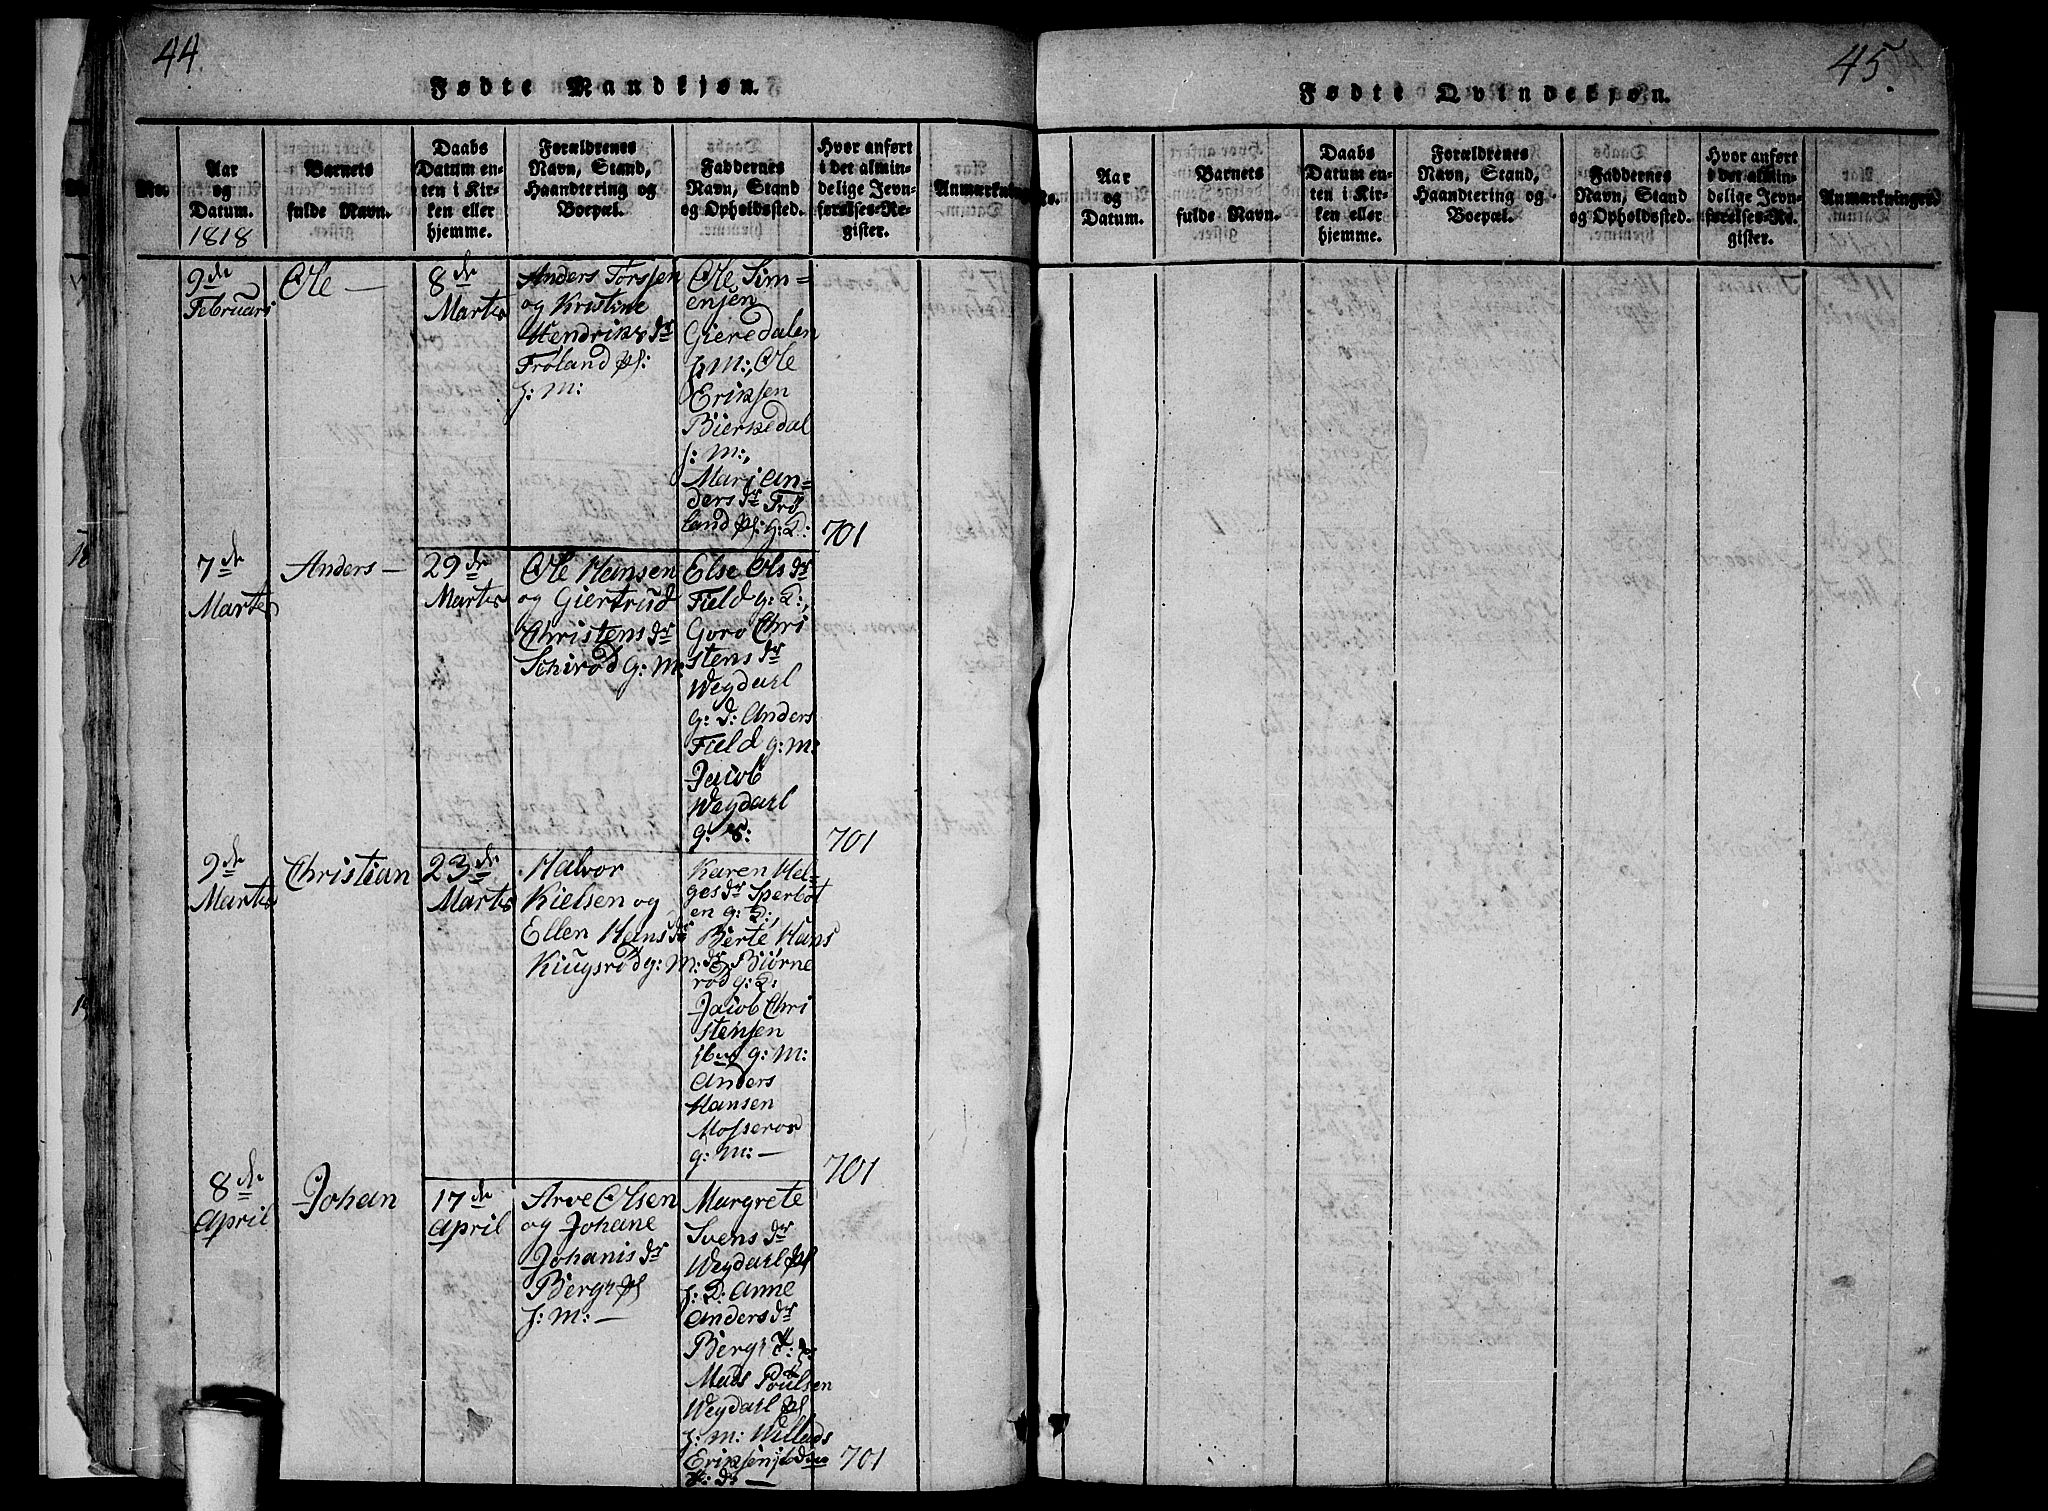 44.
Fødte Mandkjøn.
No.
Aar
og
Datum.
1818
Barnets
fulde Navn.
Daabs
Datum en-
ten i Kir-
ken eller
hjemme.
Forældrenes
Navn, Stand,
Haandtering og
Boepæl.
Faddernes
Navn, Stand
og Opholdssted.
Hvor anført
i det almin-
delige Jevn-
førelses-Re-
gister.
Anmærkning
9de
Februari
Ole —
8de
Marts
Anders Torssen
og Kristine
Hendriks dr
Frøland pl:
h: M:
Ole Sim=
ensen
Gieredalen
h: M:, Ole
Eriksen
Bierkedal
h: M:,
Mari An=
ders dr Frø
land pl: g: D:
701
7de
Martes
Anders —
29de
Marts
Ole Hansen
og Giertrud
Christens dr
Schirød g: M:
Else Ols dr
Field g: D:,
Goro Chri
stens dr
Wegdarl
g: d: Anders
Field g: M:
Jacob
Wegdarl
g: S:
701
9de
Martes
Christian
23de
Marts
Halvor
Kielsen og
Ellen Hans dr
Kiugsrød g: M:
Karen Hel=
ges dr Sperbot
en g: D:,
Berte Hans
dr Biørne
rød g: D:
Jacob Chri
stensen
g: M:
Anders
Hansen
Mosserød
g: M: —
701
8de
April
Johan
17de
April
Arve Olsen
og Johane
Johanis dr
Berg pl
h: M: —
Margrete
Svens dr
Wegdarl pl
h: D: Anne
Anders dr
Berg
Mads Poulsen
Wegdarl pl
h: M: Willads
Eriksen
701
45.
Fødte Qvindekjøn.
No.
Aar
og
Datum.
Barnets
fulde Navn.
Daabs
Datum en-
ten i Kir-
ken eller
hjemme.
Forældrenes
Navn, Stand,
Haandtering og
Boepæl.
Faddernes
Navn, Stand
og Opholdssted.
Hvor anført
i det almin-
delige Jevn-
førelses-Re-
gister.
Anmærkninger.